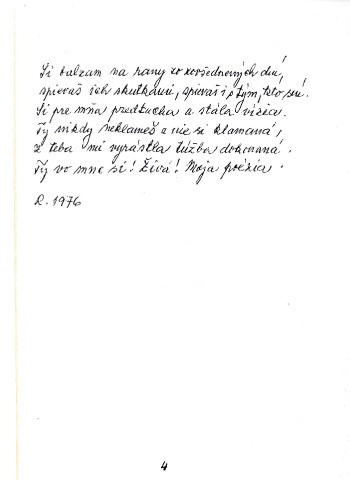 Si balzam na rany zo všedných dní,
spievaš ich skutkami, spievaš i tým, kto sní.
Si pre mňa predtucha a stála vízia.
Ty nikdy neklameš a nie si klamaná,
z teba mi vyrástla túžba dokonaná.
Ty vo mne si! Živá! Moja poézia.
R. 1976
4